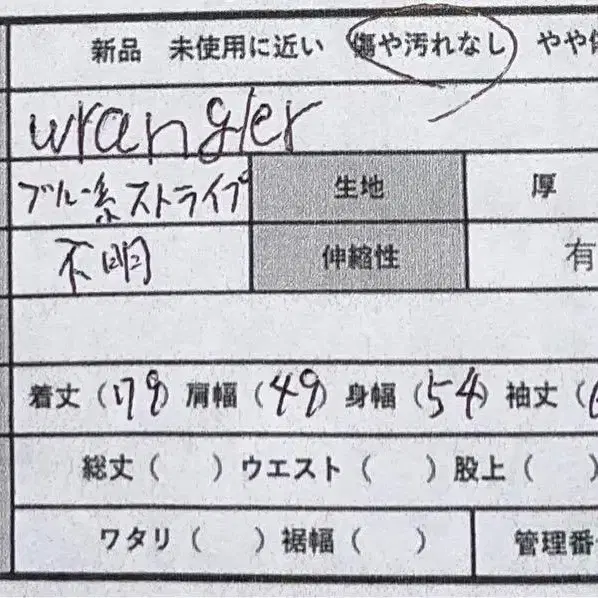 新品 未使用に近い 傷や汚れなし やや
wrangler
ブルー系ストライプ 生地 厚
不明 伸縮性 有
着丈（79）肩幅（49）身幅（54）袖丈（
総丈（ ）ウエスト（ ）股上（ ）
ワタリ（ ）裾幅（ ） 管理番